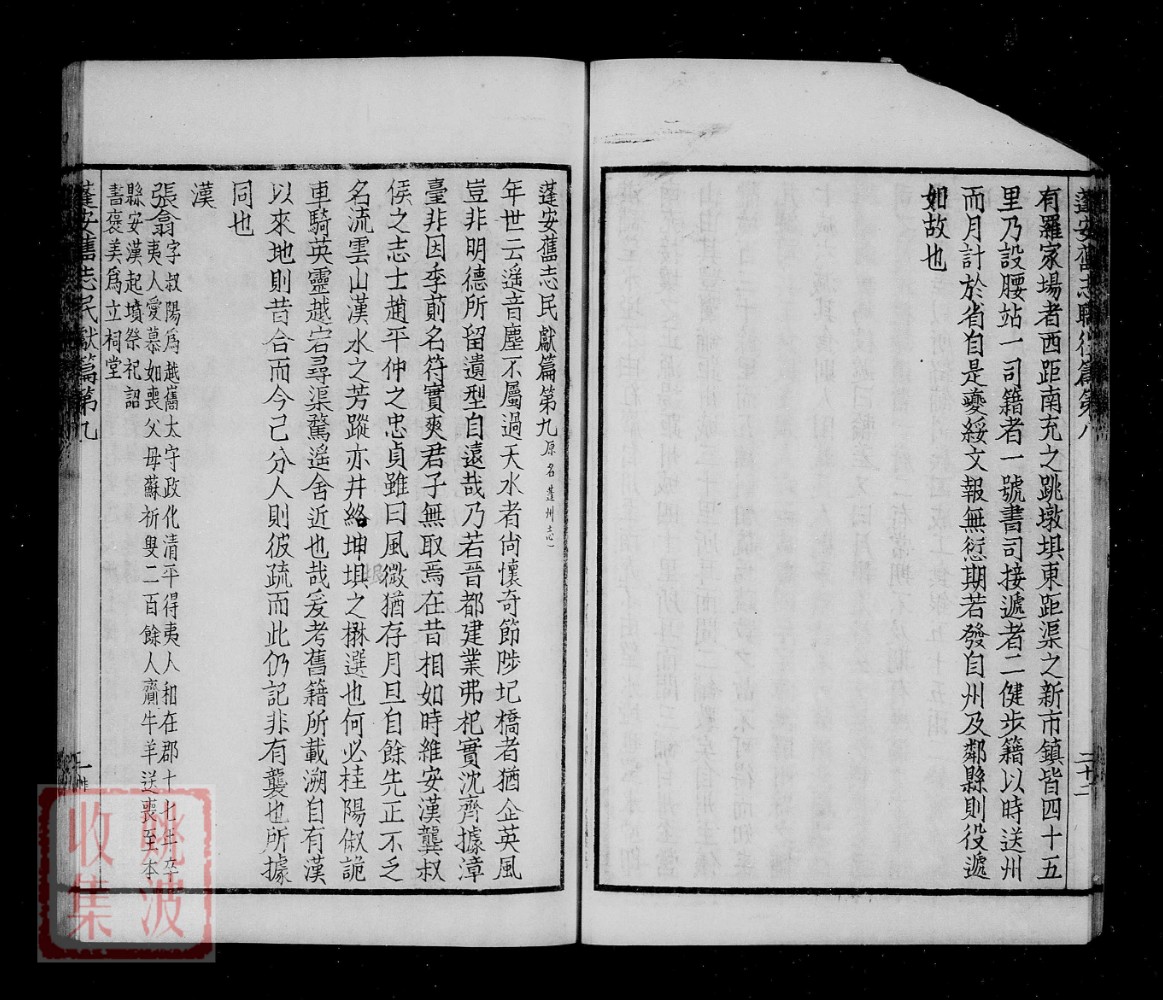 有羅家場者西距南充之跳墩埧東距渠之新市鎮皆四十五
里乃設腰站一司籍者一號書司接遞者二健步籍以時送州
而月計於省自是夔綏文報無愆期若發自州及鄰縣則役遞
如故也
蓬安舊志民獻篇第九原名蓬州志
年世云遥音塵不屬過天水者尚懷奇節陟圮橋者猶企英風
豈非明德所留遺型自遠哉乃若晉都建業弗祀實沈齊據漳
臺非因季萴名符實爽君子無取焉在昔相如時維安漢龔叔
侯之志士趙平仲之忠貞雖曰風微猶存月旦自餘先正不乏
名流雲山漢水之芳蹤亦井絡坤埧之楙選也何必桂陽俶詭
車騎英靈越宕尋渠騖遥舍近也哉爰考舊籍所載溯自有漢
以來地則昔合而今己分人則彼疏而此仍記非有襲也所據
同也
漢
張翕字叔陽爲越巂太守政化清平得夷人和在郡十七年卒
夷人愛慕如喪父母蘇祈叟二百餘人齎牛羊送喪至本
縣安漢起墳祭祀詔
書褒美爲立祠堂
蓬安舊志民獻篇第九
一
姚波
收集